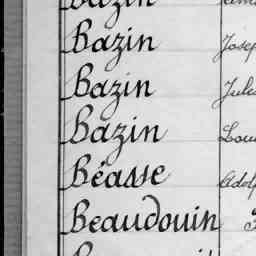 Bazin
Bazin Josep
Bazin Jules
Bazin Lou
Béasse Adolp
Beaudouin